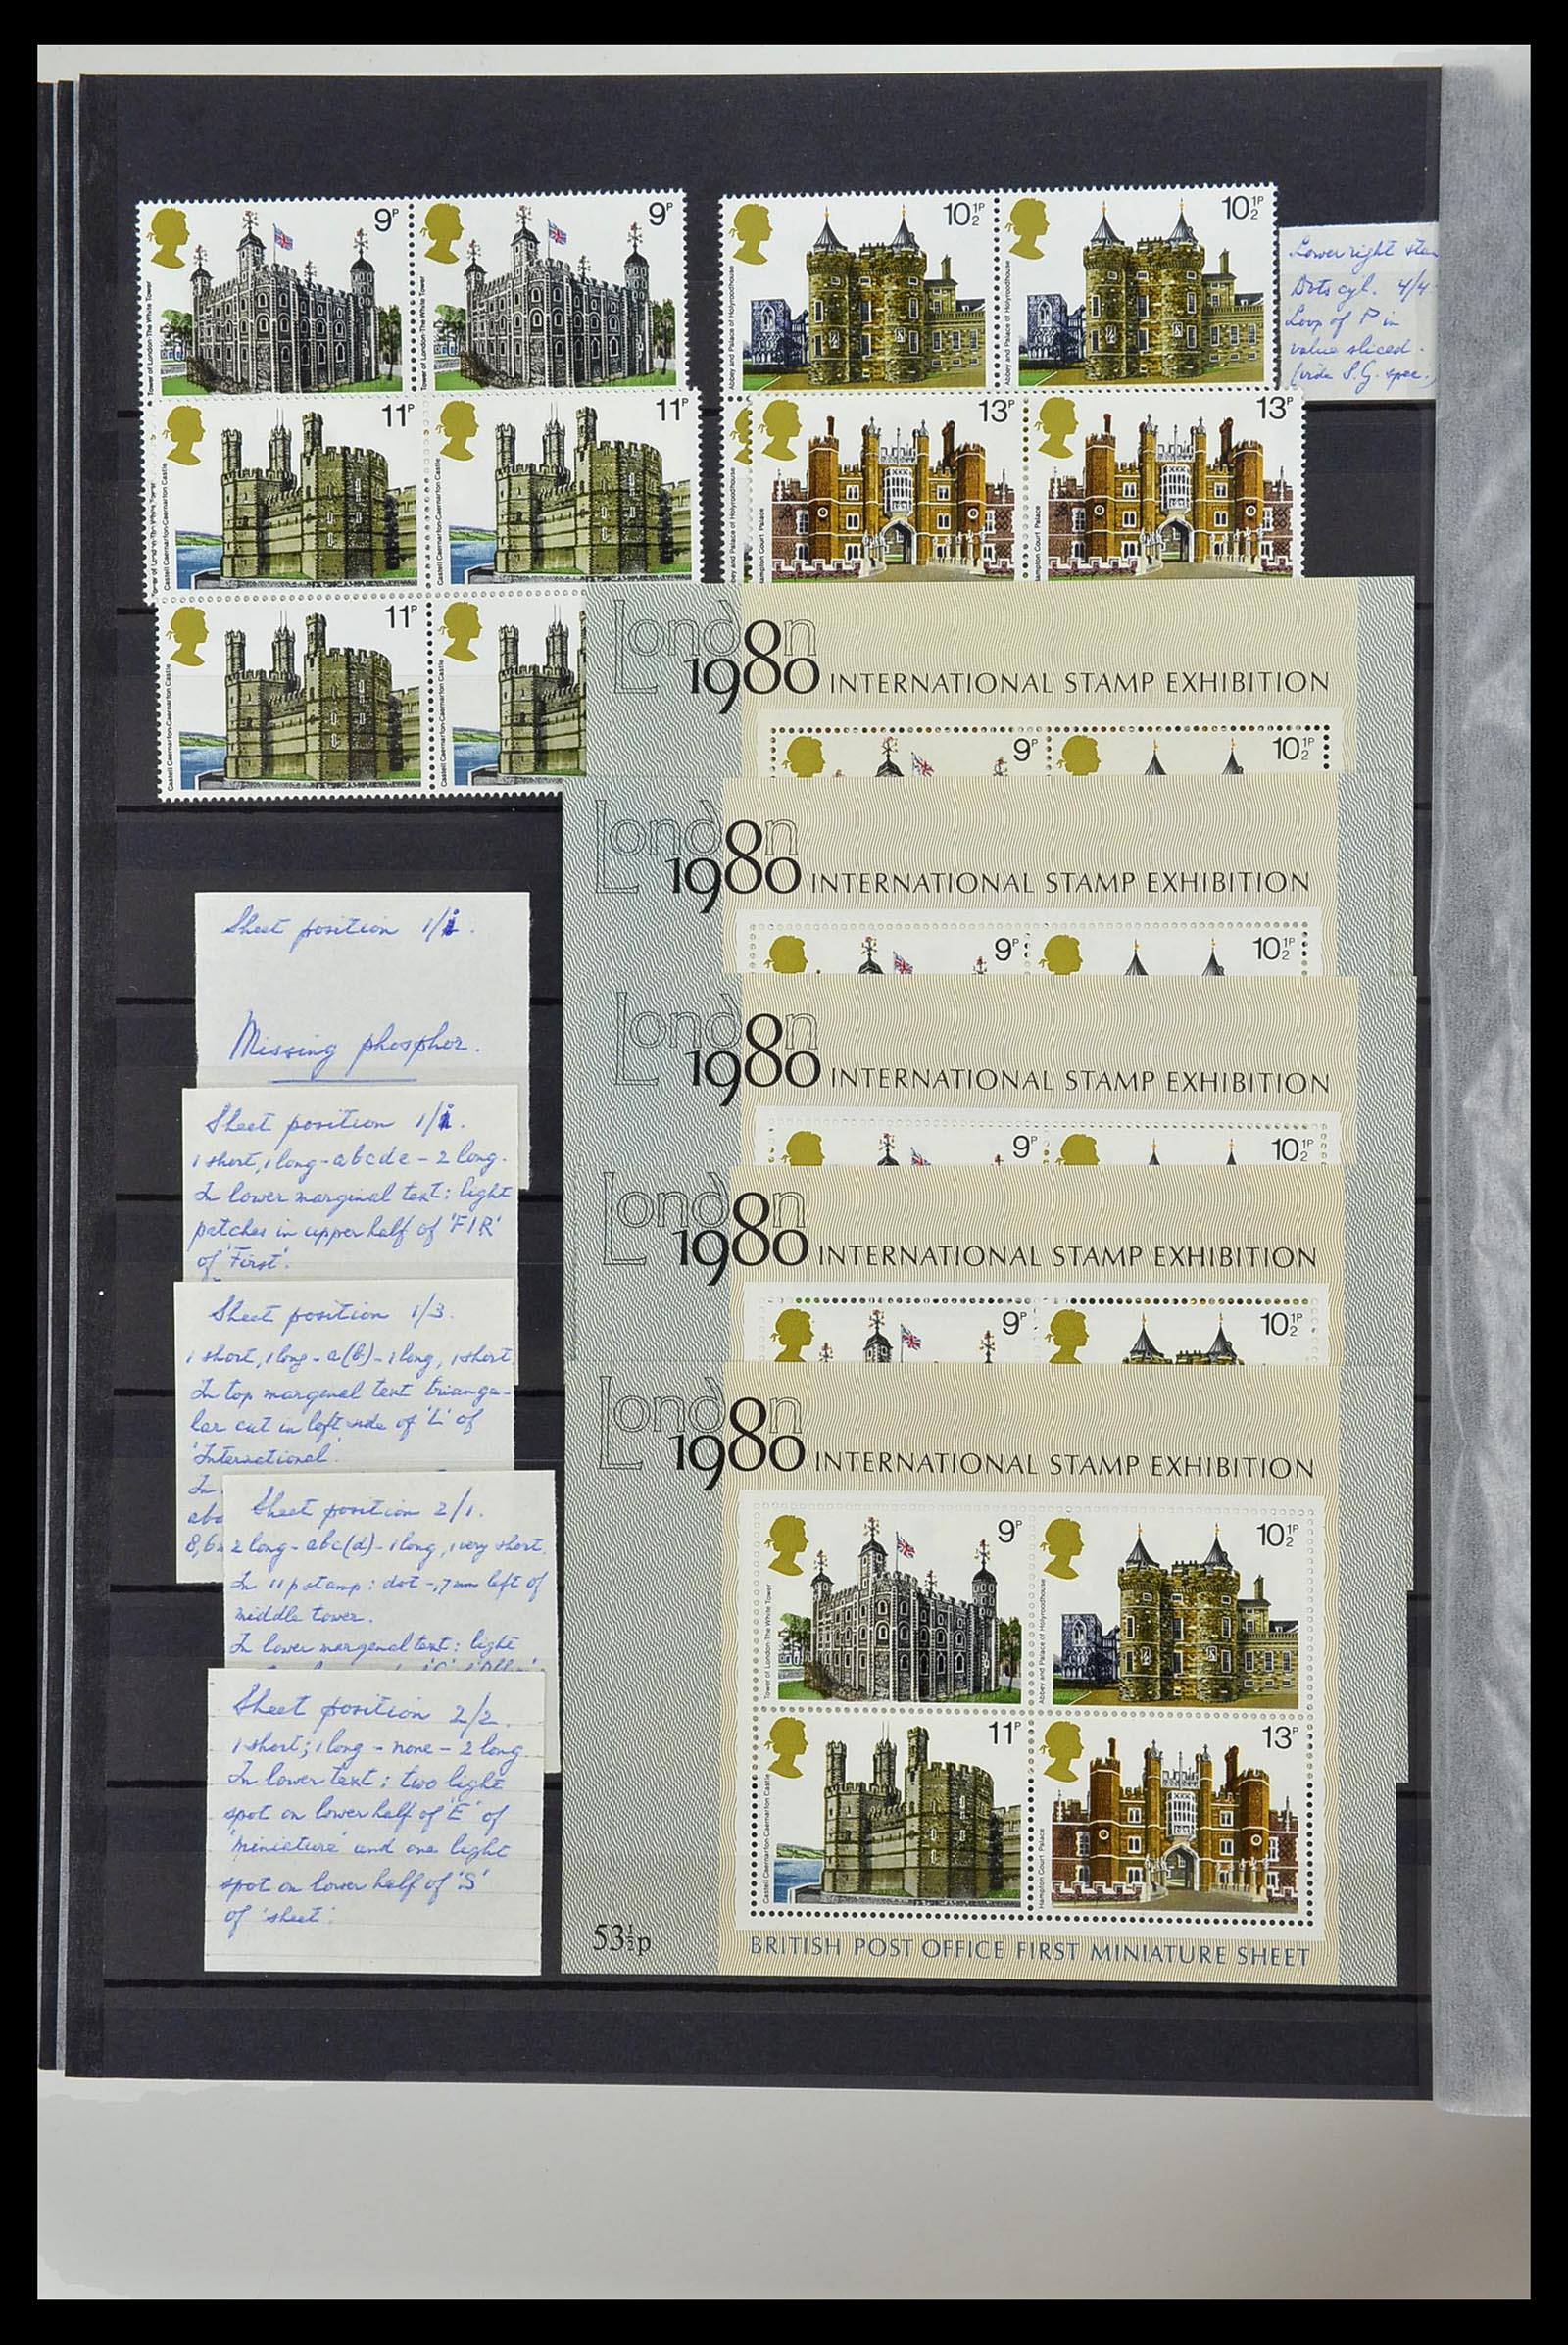 9P
9P
Tower of London-The White Tower
Tower of London-The White Tower
10½P
10½P
Abbey and Palace of Holyroodhouse
Abbey and Palace of Holyroodhouse
Lower right
Dots cyl. 4/4
Loop of P in
value sliced.
(vide S.G. spec.)
11P
11P
Castell Caernarfon-Caernarfon Castle
Castell Caernarfon-Caernarfon Castle
13P
13P
Hampton Court Palace
Hampton Court Palace
11P
Castell Caernarfon-Caernarfon Castle
Castell Caernarfon-Caernarfon Castle
London
1980 INTERNATIONAL STAMP EXHIBITION
9P
10½P
London
1980 INTERNATIONAL STAMP EXHIBITION
9P
10½P
London
1980 INTERNATIONAL STAMP EXHIBITION
9P
10½P
London
1980 INTERNATIONAL STAMP EXHIBITION
9P
10½P
London
1980 INTERNATIONAL STAMP EXHIBITION
9P
10½P
Tower of London-The White Tower
Abbey and Palace of Holyroodhouse
11P
13P
Castell Caernarfon-Caernarfon Castle
Hampton Court Palace
53½p
BRITISH POST OFFICE FIRST MINIATURE SHEET
Sheet position 1/i.
Missing phosphor.
Sheet position 1/i.
1 short, 1 long - abcde - 2 long.
In lower marginal text: light
patches in upper half of 'FIR'
of 'First'.
Sheet position 1/3.
1 short, 1 long - a(b) - 1 long, 1 short
In top margenal text triangu-
lar cut in left side of 'L' of
'International'.
In
abo
8,6
Sheet position 2/1.
2 long - abc(d) - 1 long, 1 very short.
In 11p stamp: dot -,7mm left of
middle tower.
In lower margenal text: light
Sheet position 2/2.
1 short; 1 long - none - 2 long
In lower text: two light
spot on lower half of 'E' of
'miniature' and one light
spot on lower half of 'S'
of 'sheet'.